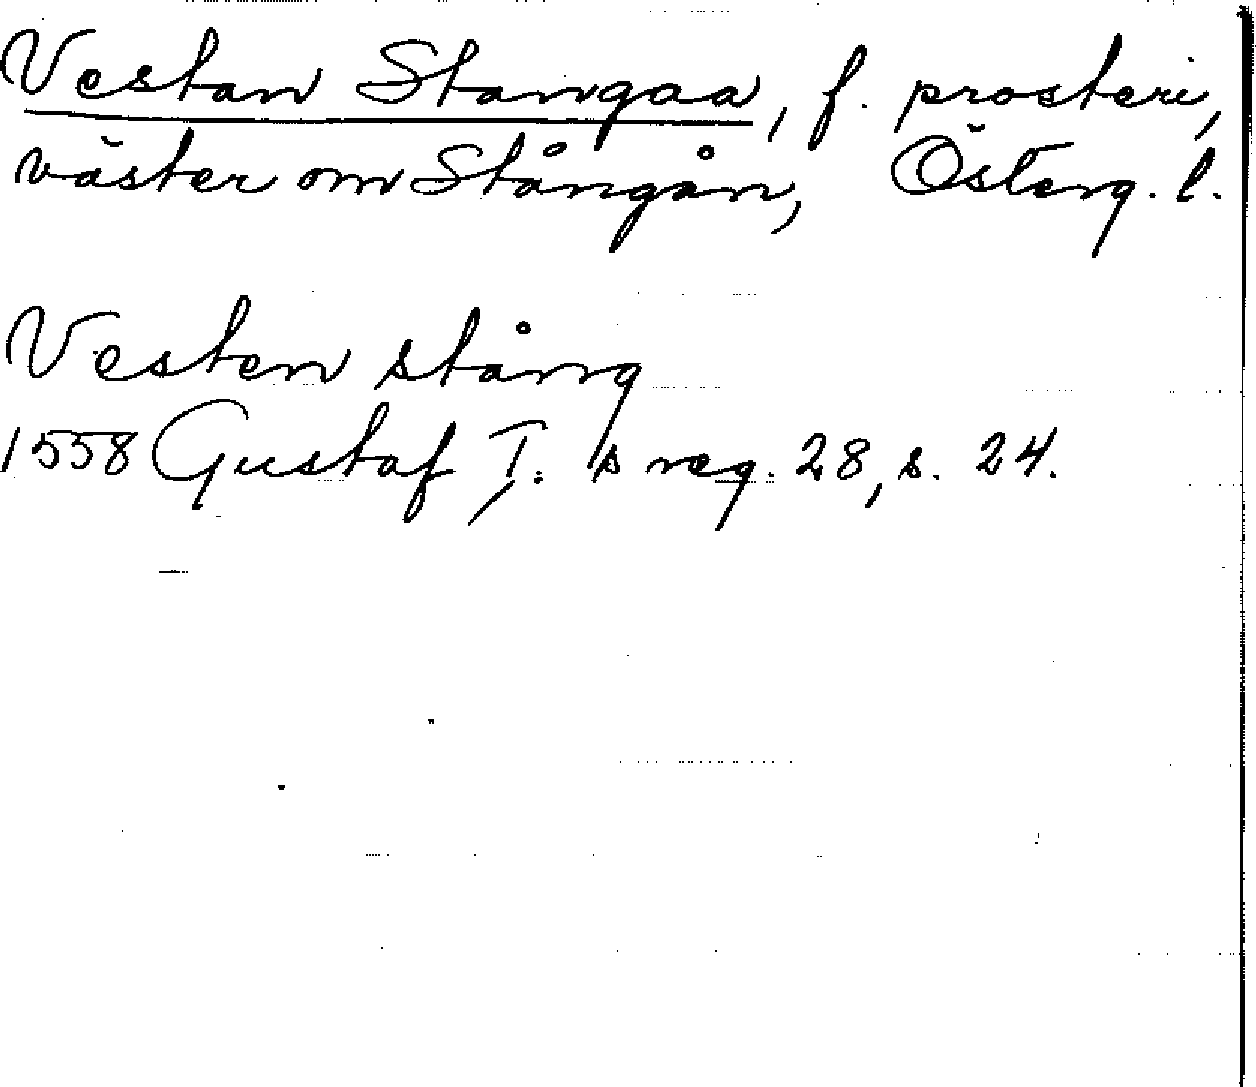 Vestan Stangaa, f. prosteri,
väster om Stångån, Österg. l.
Vesten stång
1558 Gustaf I:s reg. 28, s. 24.